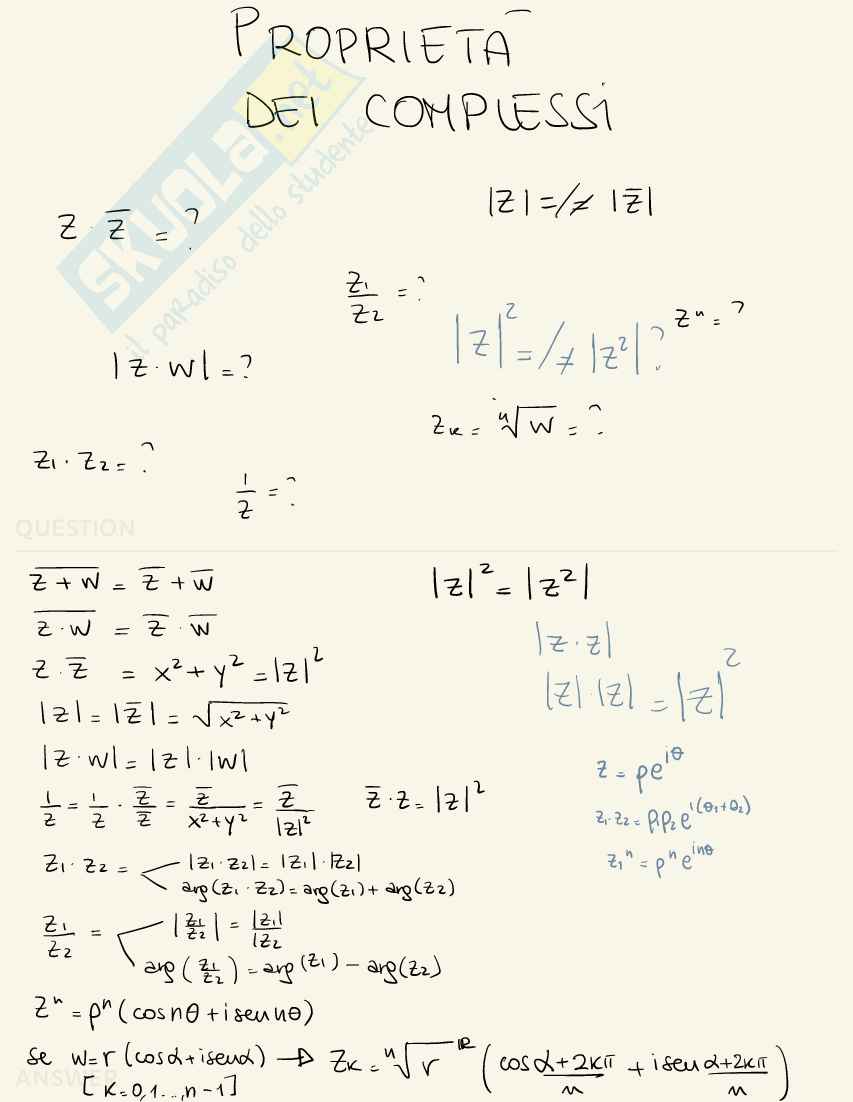 PROPRIETÀ
DEI COMPLESSI
SKUOLA.net
il paradiso dello studente
|z| =/≠ |z̅|
z · z̅ = ?
z₁/z₂ = ?
|z|² =/≠ |z²|?
zⁿ = ?
|z · w| = ?
zₖ = ⁿ√w = ?
z₁ · z₂ = ?
1/z = ?
QUESTION
\overline{z + w} = z̅ + w̅
|z|² = |z²|
\overline{z · w} = z̅ · w̅
|z · z|
z · z̅ = x² + y² = |z|²
|z| · |z| = |z|²
|z| = |z̅| = √(x² + y²)
|z · w| = |z| · |w|
z = ρe^{iθ}
1/z = 1/z · z̅/z̅ = z̅/(x² + y²) = z̅/|z|²
z̅ · z = |z|²
z₁ · z₂ = ρ₁ρ₂e^{i(θ₁+θ₂)}
z₁ⁿ = ρⁿe^{inθ}
z₁ · z₂ = |z₁ · z₂| = |z₁| · |z₂|
arg(z₁ · z₂) = arg(z₁) + arg(z₂)
z₁/z₂ = |z₁/z₂| = |z₁|/|z₂
arg(z₁/z₂) = arg(z₁) − arg(z₂)
zⁿ = ρⁿ(cos nθ + i sen nθ)
Se w = r (cos α + i sen α) → zₖ = ⁿ√r^ℝ (cos (α + 2kπ)/n + i sen (α + 2kπ)/n)
[k = 0, 1 ..., n − 1]
ANSWER